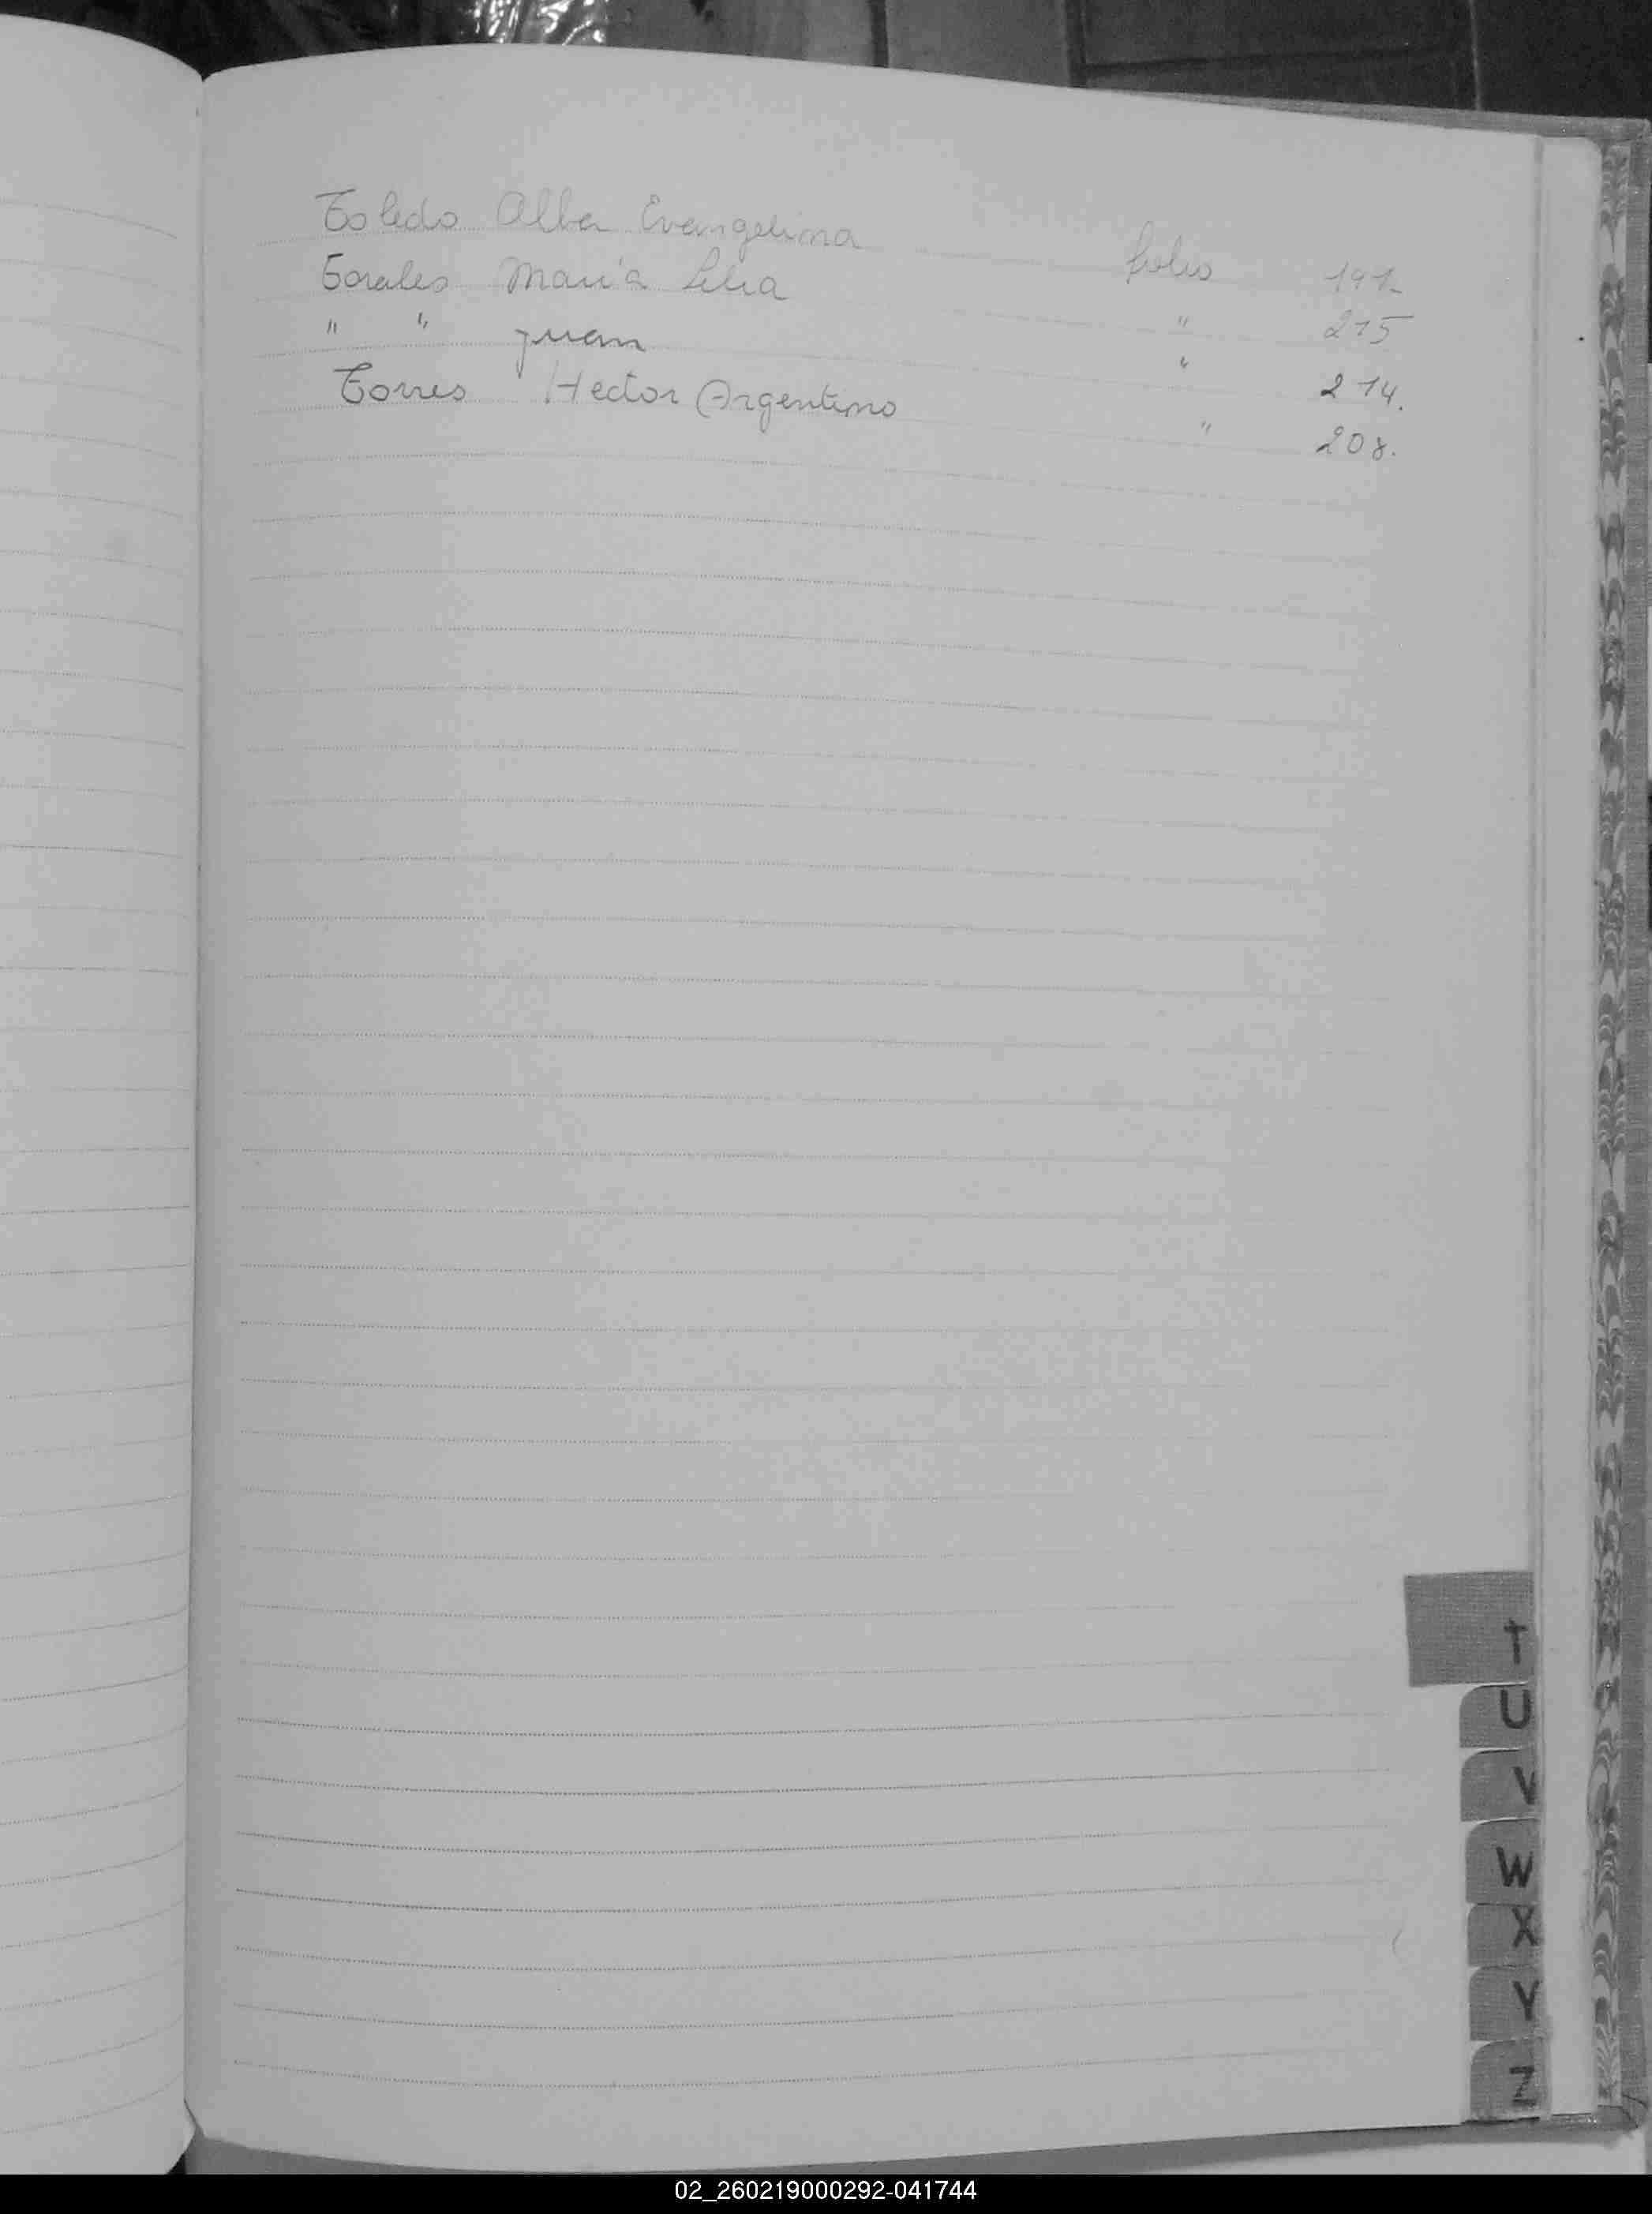 Toledo Alba Evangelina folio 191.
Torales María Lelia " 215
" " Juan " 214.
Torres Hector Argentino " 208.
T
U
V
W
X
Y
Z
02_260219000292-041744